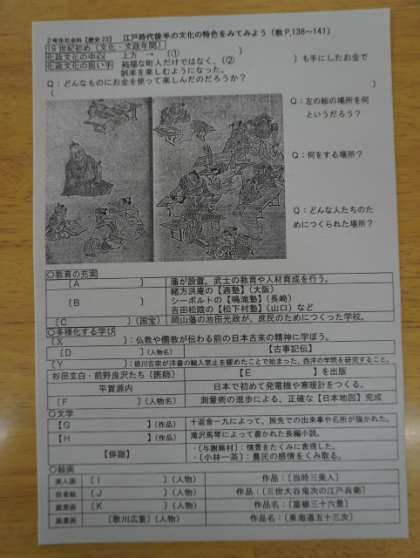 2年生社会科【歴史23】 江戸時代後半の文化の特色をみてみよう（教P,138～141）
19世紀初め（文化・文政年間）
化政文化の中心 上方 → 〔①　　　　〕
化政文化の担い手 裕福な町人だけではなく、〔②　　　　〕も手にしたお金で
娯楽を楽しむようになった。
Q：どんなものにお金を使って楽しんだのだろうか？
（　　　　）
Q：左の絵の場所を何
というだろう？
Q：何をする場所？
Q：どんな人たちのた
めにつくられた場所？
〇教育の充実
〔A　　　　〕 藩が設置。武士の教育や人材育成を行う。
〔B　　　　〕 緒方洪庵の【適塾】（大阪）
シーボルトの【鳴滝塾】（長崎）
吉田松陰の【松下村塾】（山口）など
〔C　　　　〕（国宝） 岡山藩の池田光政が、庶民のためにつくった学校。
〇多様化する学び
〔X　　　　〕：仏教や儒教が伝わる前の日本古来の精神に学ぼう。
〔D　　　　〕（人物名） 【古事記伝】
〔Y　　　　〕：徳川吉宗が洋書の輸入禁止を緩めたことで始まった、西洋の学問を研究すること。
杉田玄白・前野良沢たち（医師） 【E　　　　】を出版
平賀源内 日本で初めて発電機や寒暖計をつくる。
〔F　　　　〕（人物名） 測量術の進歩による、正確な【日本地図】完成
〇文学
【G　　　　】（作品） 十返舎一九によって、旅先での出来事や名所が描かれた。
【H　　　　】（作品） 滝沢馬琴によって書かれた長編小説。
【俳諧】 ・〔与謝蕪村〕：情景をたくみに表現した。
・〔小林一茶〕：農民の感情をくみ取る。
〇絵画
美人画 〔I　　　　〕（人物） 作品：〔当時三美人〕
役者絵 〔J　　　　〕（人物） 作品：〔三世大谷鬼次の江戸兵衛〕
風景画 〔K　　　　〕（人物） 作品名：〔富嶽三十六景〕
風景画 〔歌川広重〕（人物） 作品名：〔東海道五十三次〕